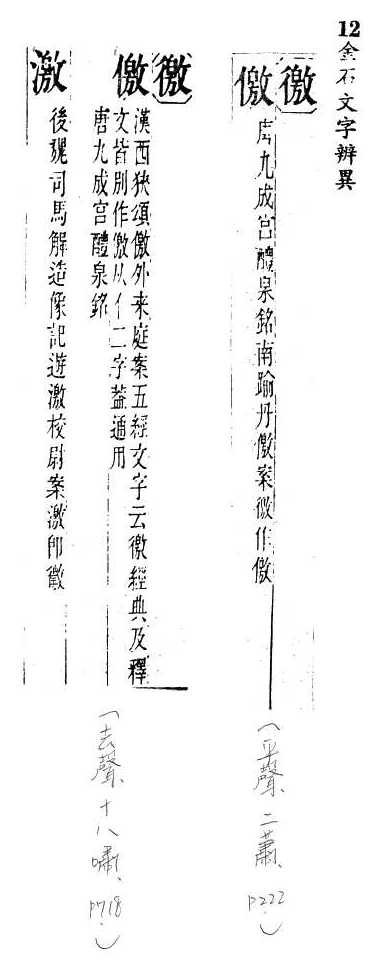 12金石文字辨異
徼
儌
唐九成宮醴泉銘南踰丹儌案徼作儌
(平聲、二蕭、P222)
徼
儌
漢西狹頌儌外来庭案五經文字云徼經典及釋
文皆別作儌从亻二字蓋通用
唐九成宮醴泉銘
激
後魏司馬解造像記遊激校尉案激即徼
(去聲、十八嘯、P718)